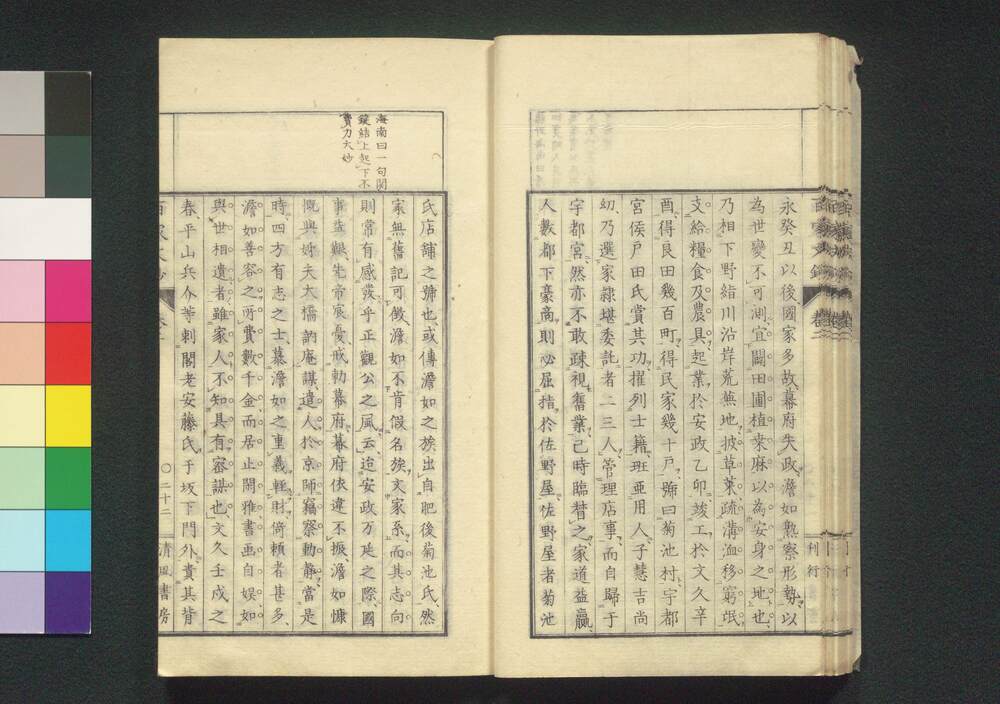 永癸丑以後國家多故幕府失政澹如熟察形勢以
為世變不可測宜闢田圃植桒麻以為安身之地也
乃相下野絹川沿岸荒蕪地披草萊疏溝洫移窮氓
支給糧食及農具起業於安政乙卯竣工於文久辛
酉得良田幾百町得民家幾十戸號曰菊池村宇都
宮侯戸田氏賞其功擢列士籍班亜用人子慧吉尚
幼乃選家隷堪委託者二三人管理店事而自歸于
宇都宮然亦不敢疎視舊業已時臨督之家道益贏
人數都下豪商則必屈指於佐野屋佐野屋者菊池
氏店舗之號也或傳澹如之族出自肥後菊池氏然
家無舊記可徴澹如不肯假名族文家系而其志向
則常有感發乎正觀公之風云迨安政万延之際國
事造艱先帝宸憂戒勅幕府幕府依違不振澹如慷
慨與姊夫大橋訥庵謀遣人於京師竊察動静當是
時四方有志之士慕澹如之重義輕財倚頼者甚多
澹如善容之所費數千金而居止閑雅書画自娯如
與世相遺者雖家人不知具有審謀也文久壬戌之
春平山兵介等刺閣老安藤氏于坂下門外責其背
海南曰一句関
鎖結上起下不
費力大妙
百家文
〇二十二
清風書房
刊行